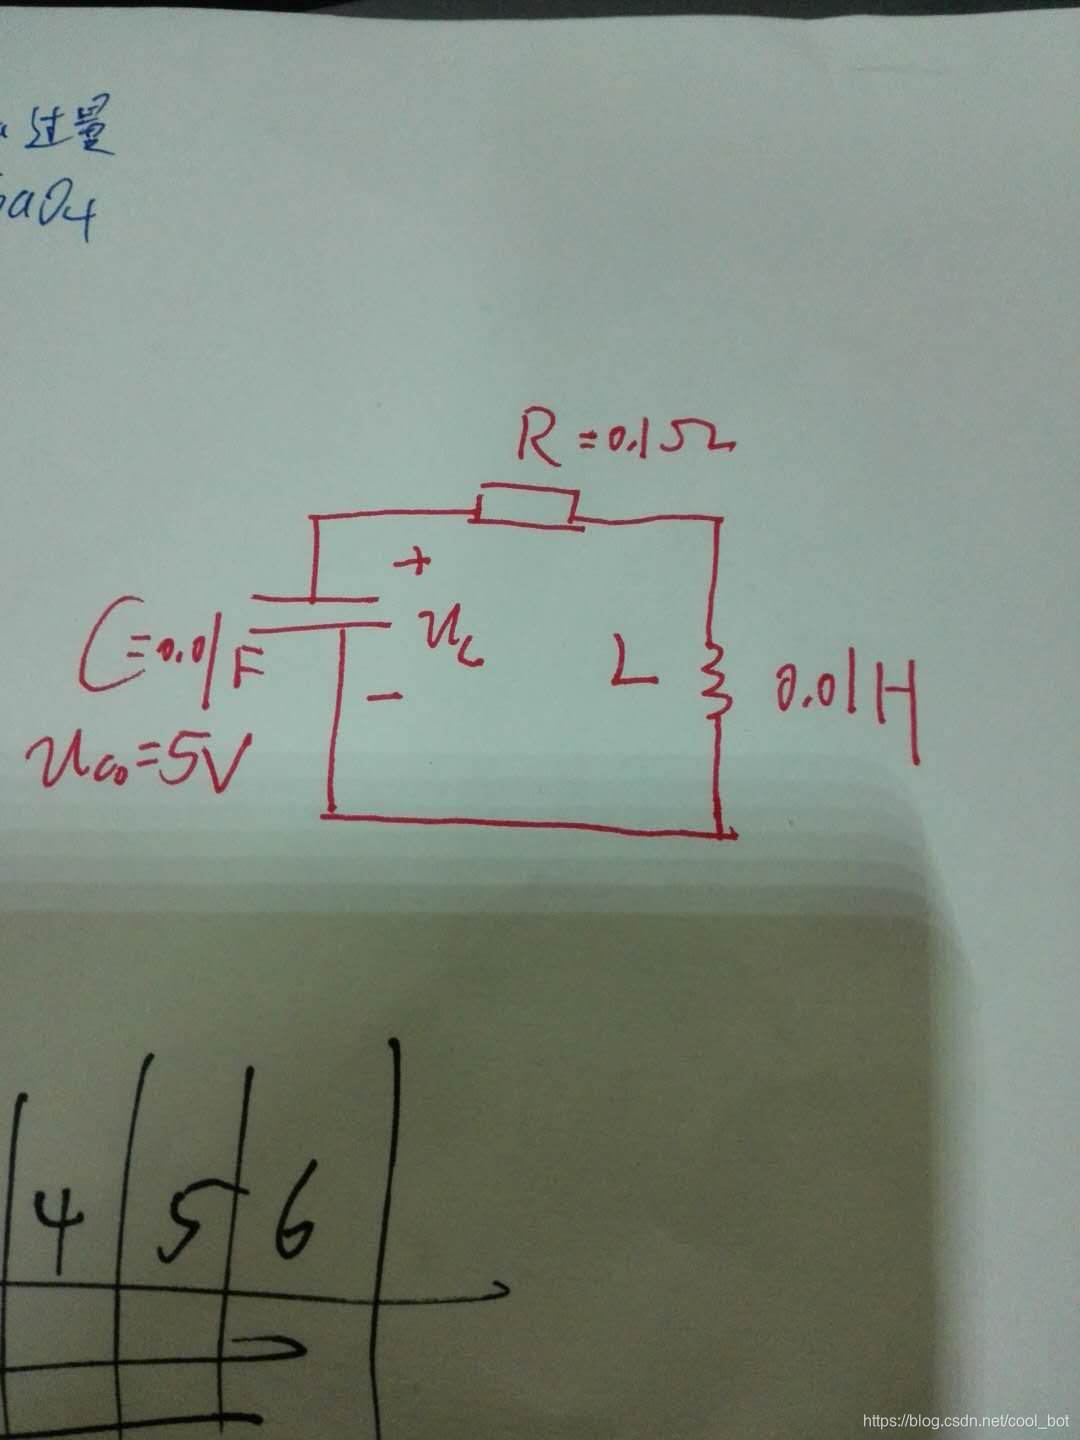 过量
aO4
R=0.1Ω
+
C=0.01F
uc
L
0.01H
-
uc0=5V
4 5 6
https://blog.csdn.net/cool_bot